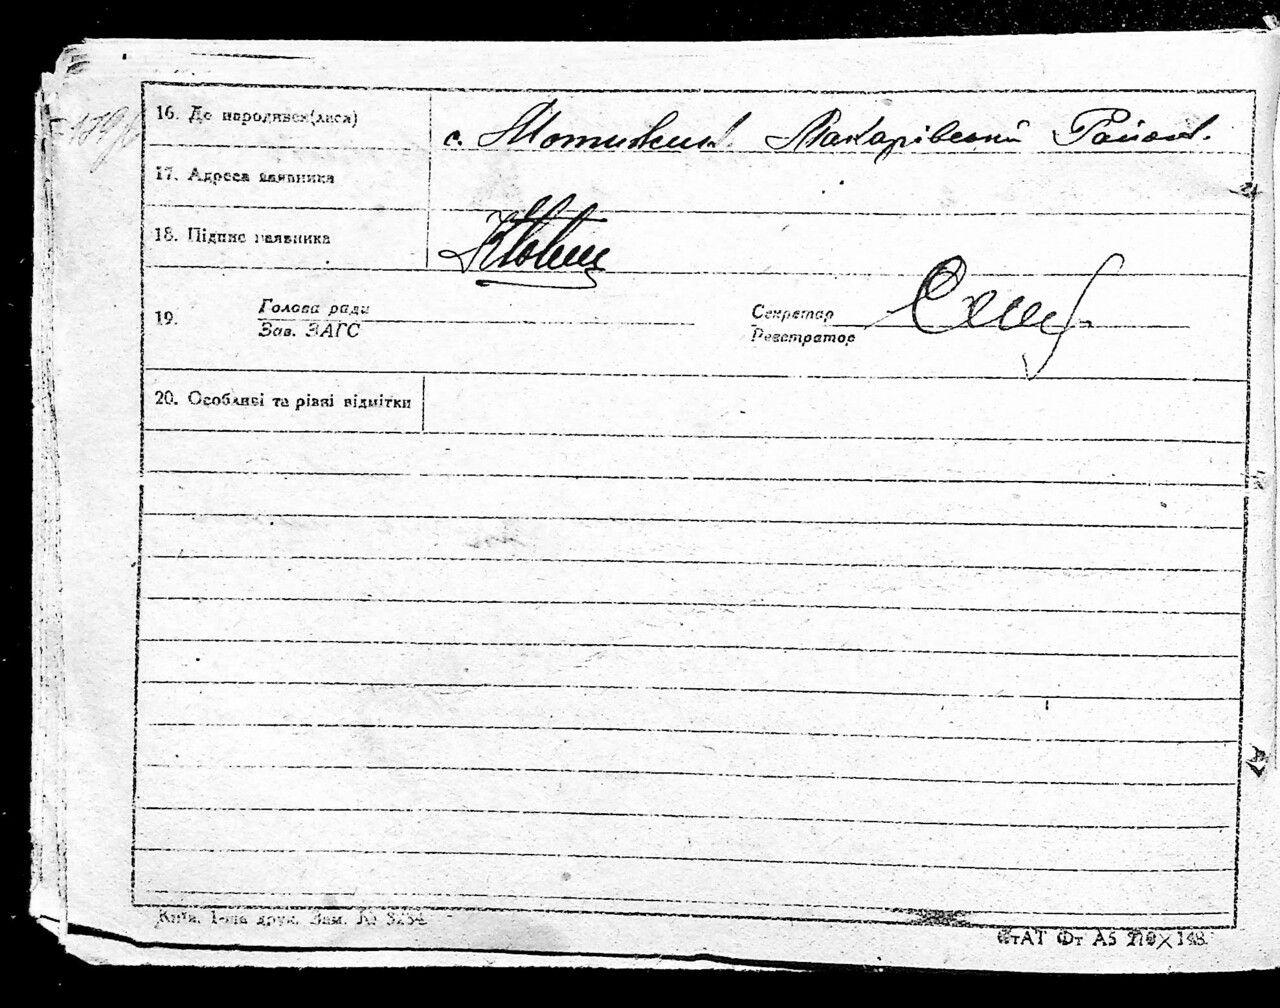 16. Де народився(лася)
с. Мотижин. Макарівський Район.
17. Адреса заявника
18. Підпис заявника
19.
Голова ради
Зав. ЗАГС
Секретар
Реєстратор
20. Особливі та різні відмітки
Київ. 1-ша друк. Зам. № 3234
СтАТ Фт А5 210×148.